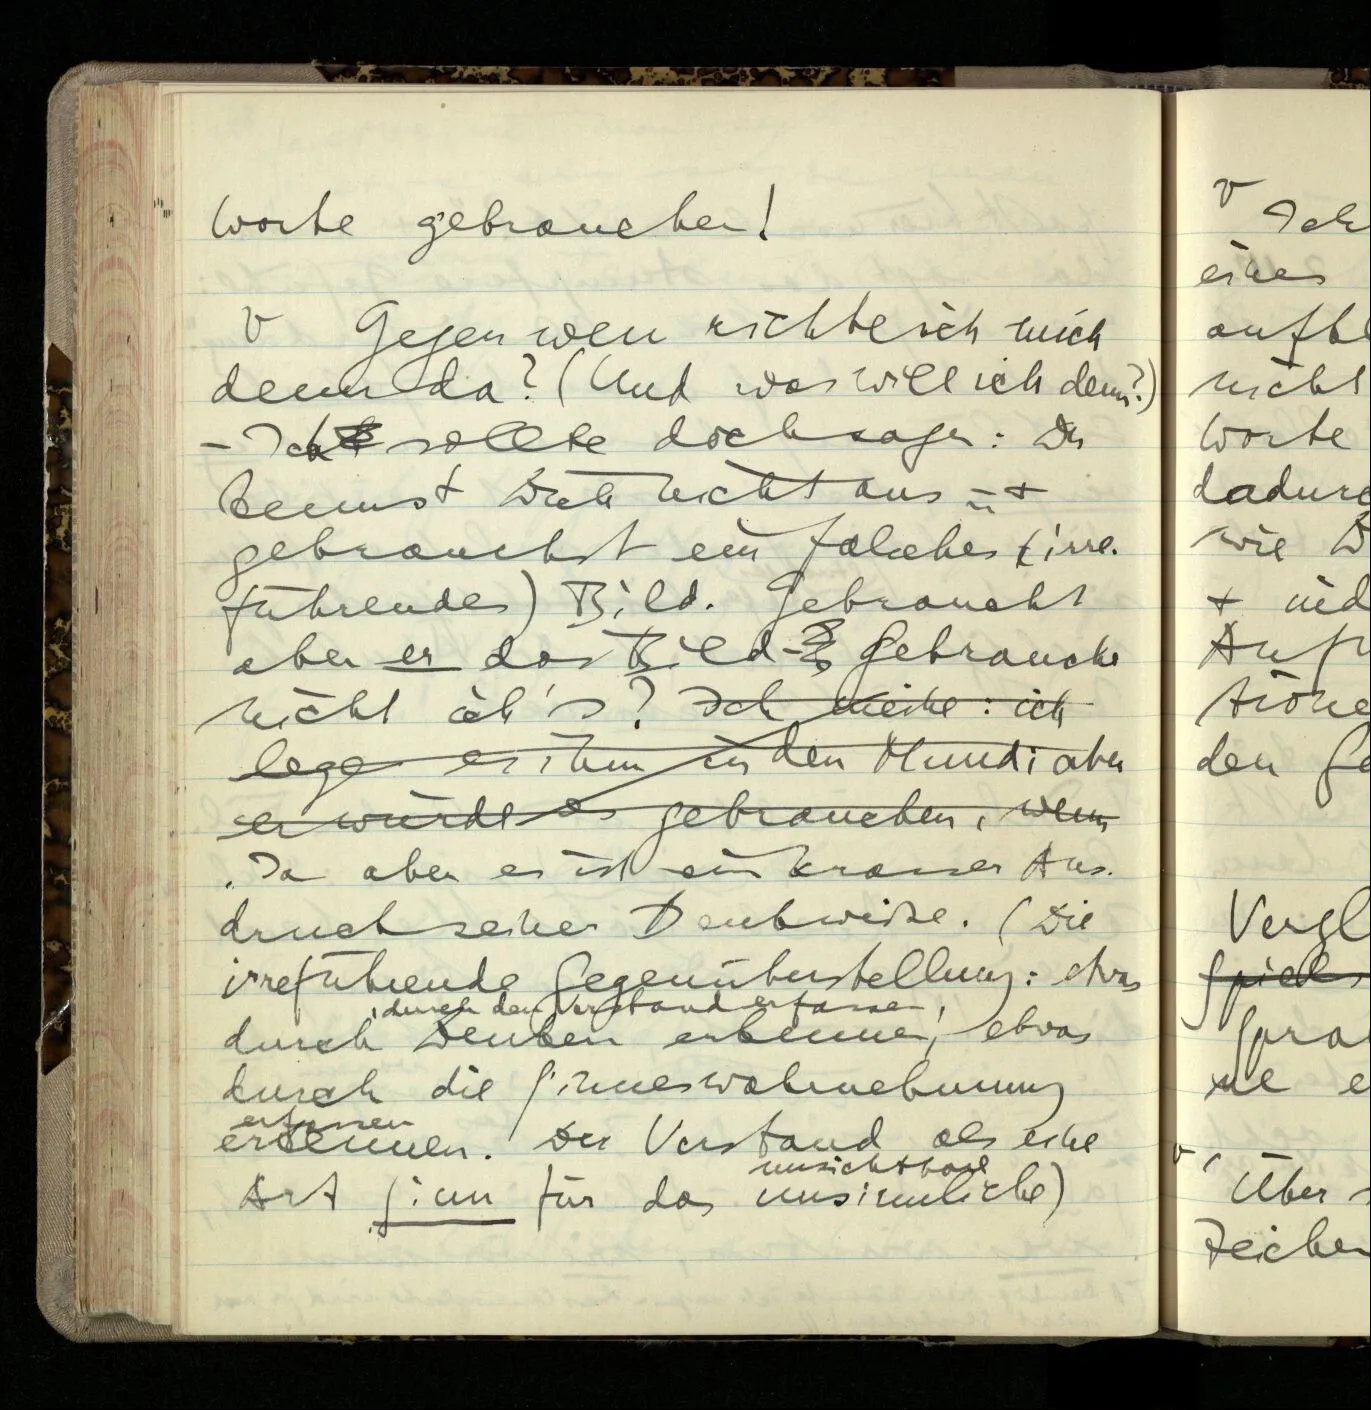 Worte gebrauchen!
v Gegen wen richte ich mich
denn da? (Und was will ich denn?)
– Ich sollte doch sagen: Du
kennst Dich nicht aus – +
gebrauchst ein falsches (irre-
führendes) Bild. Gebraucht
aber er das Bild – Gebrauche
nicht ich's? Ich meine: ich
lege es ihm in den Mund; aber
er würde es gebrauchen, wenn
. Ja aber es ist ein krasser Aus-
druck seiner Denkweise. (Die
irreführende Gegenüberstellung: etwas
'durch den Verstand erfassen',
durch Denken erkennen, etwas
durch die Sinneswahrnehmung
erfassen
erkennen. Der Verstand als eine
unsichtbare
Art Sinn für das unsinnliche)
v Ich
eines
nicht
Worte
wie D
+
den Ge
Vergl
Spiels
v '
Über
Zeichen